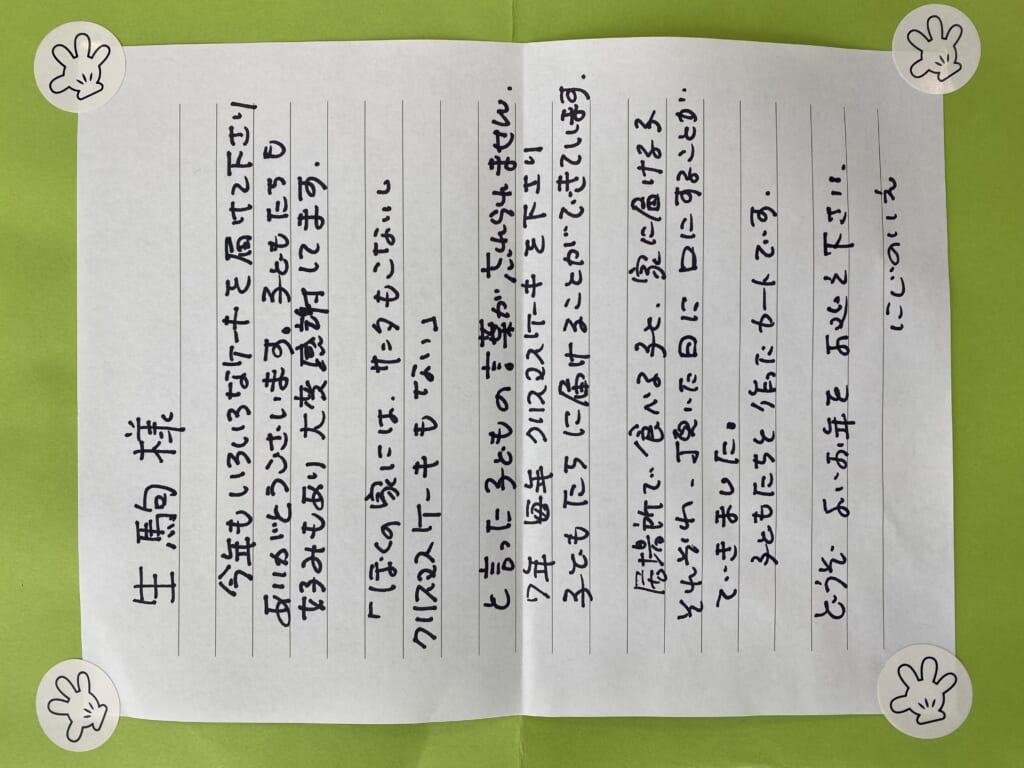 生駒様
今年もいろいろなケーキを届けて下さり
ありがとうございます。子どもたちも
好みもあり大変感謝してます。
「ぼくの家には、サンタもこないし
クリスマスケーキもない」
と言った子どもの言葉が忘れられません。
7年 毎年クリスマスケーキを下さり
子どもたちに届けることができています。
居場所で食べる子と、家に届ける子
それぞれ、頂いた日に口にすることが
できました。
子どもたちと作ったカードです。
どうぞ よいお年を お迎え下さい。
にじのいえ